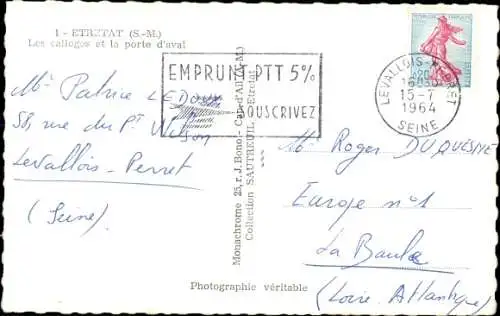 1 - ETRETAT (S.-M.)
Les caloges et la porte d'aval
EMPRUNT PTT 5%
SOUSCRIVEZ
LEVALLOIS-PERRET
15-7
1964
SEINE
Mr Patrice LEDOUX
58, rue du Pt Wilson
Levallois-Perret
(Seine)
Monochrome 25, r. J. Bono - Cap-d'Ail (A.-M.)
Collection SAUTREUIL - Etretat
Mr Roger DUQUESNE
Europe n°1
La Baule
(Loire Atlantique)
Photographie véritable